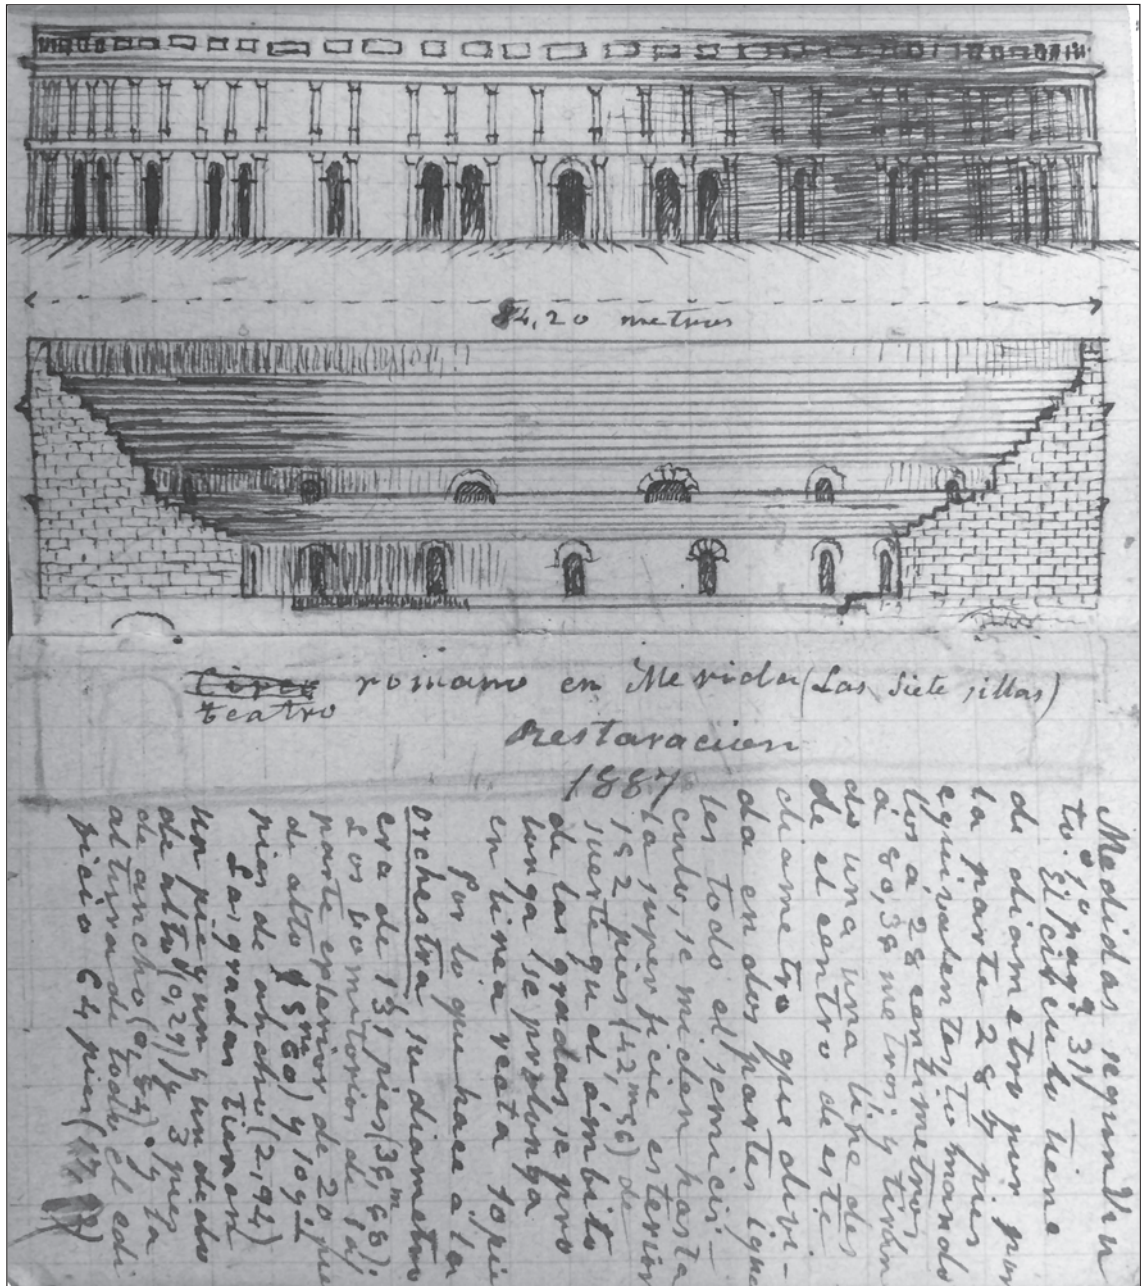 84,20 metros
Circo romano en Merida (Las siete sillas)
teatro
Restauracion
1887
Medidas segun Viu
to. 1º pagª 31
El círculo tiene
de diametro por por
la parte 287 pies
equivalentes, tomando
los á 28 centímetros
á 80,36 metros; y tirán
do una una línea des
de el centro de este
diametro que divi-
da en dos partes igua
les todo el semicír-
culo, se miden hasta
la superficie esterior
152 pies (42m56) de
suerte que el ámbito
de las gradas se pro
longa se prolonga
en linea recta 10 pie
Por lo que hace a la
orchestra su diametro
era de 131 pies (36,m68).
Los vomitorios de la
parte exterior de 20 pie
de alto (5m60) y 10 y ½
pies de ancho (2,94)
Las gradas tienen
un pie y un y un dedo
de alto (0,29) y 3 pies
de ancho (0,84). y la
altura de todo el edi
ficio 64 pies (17,